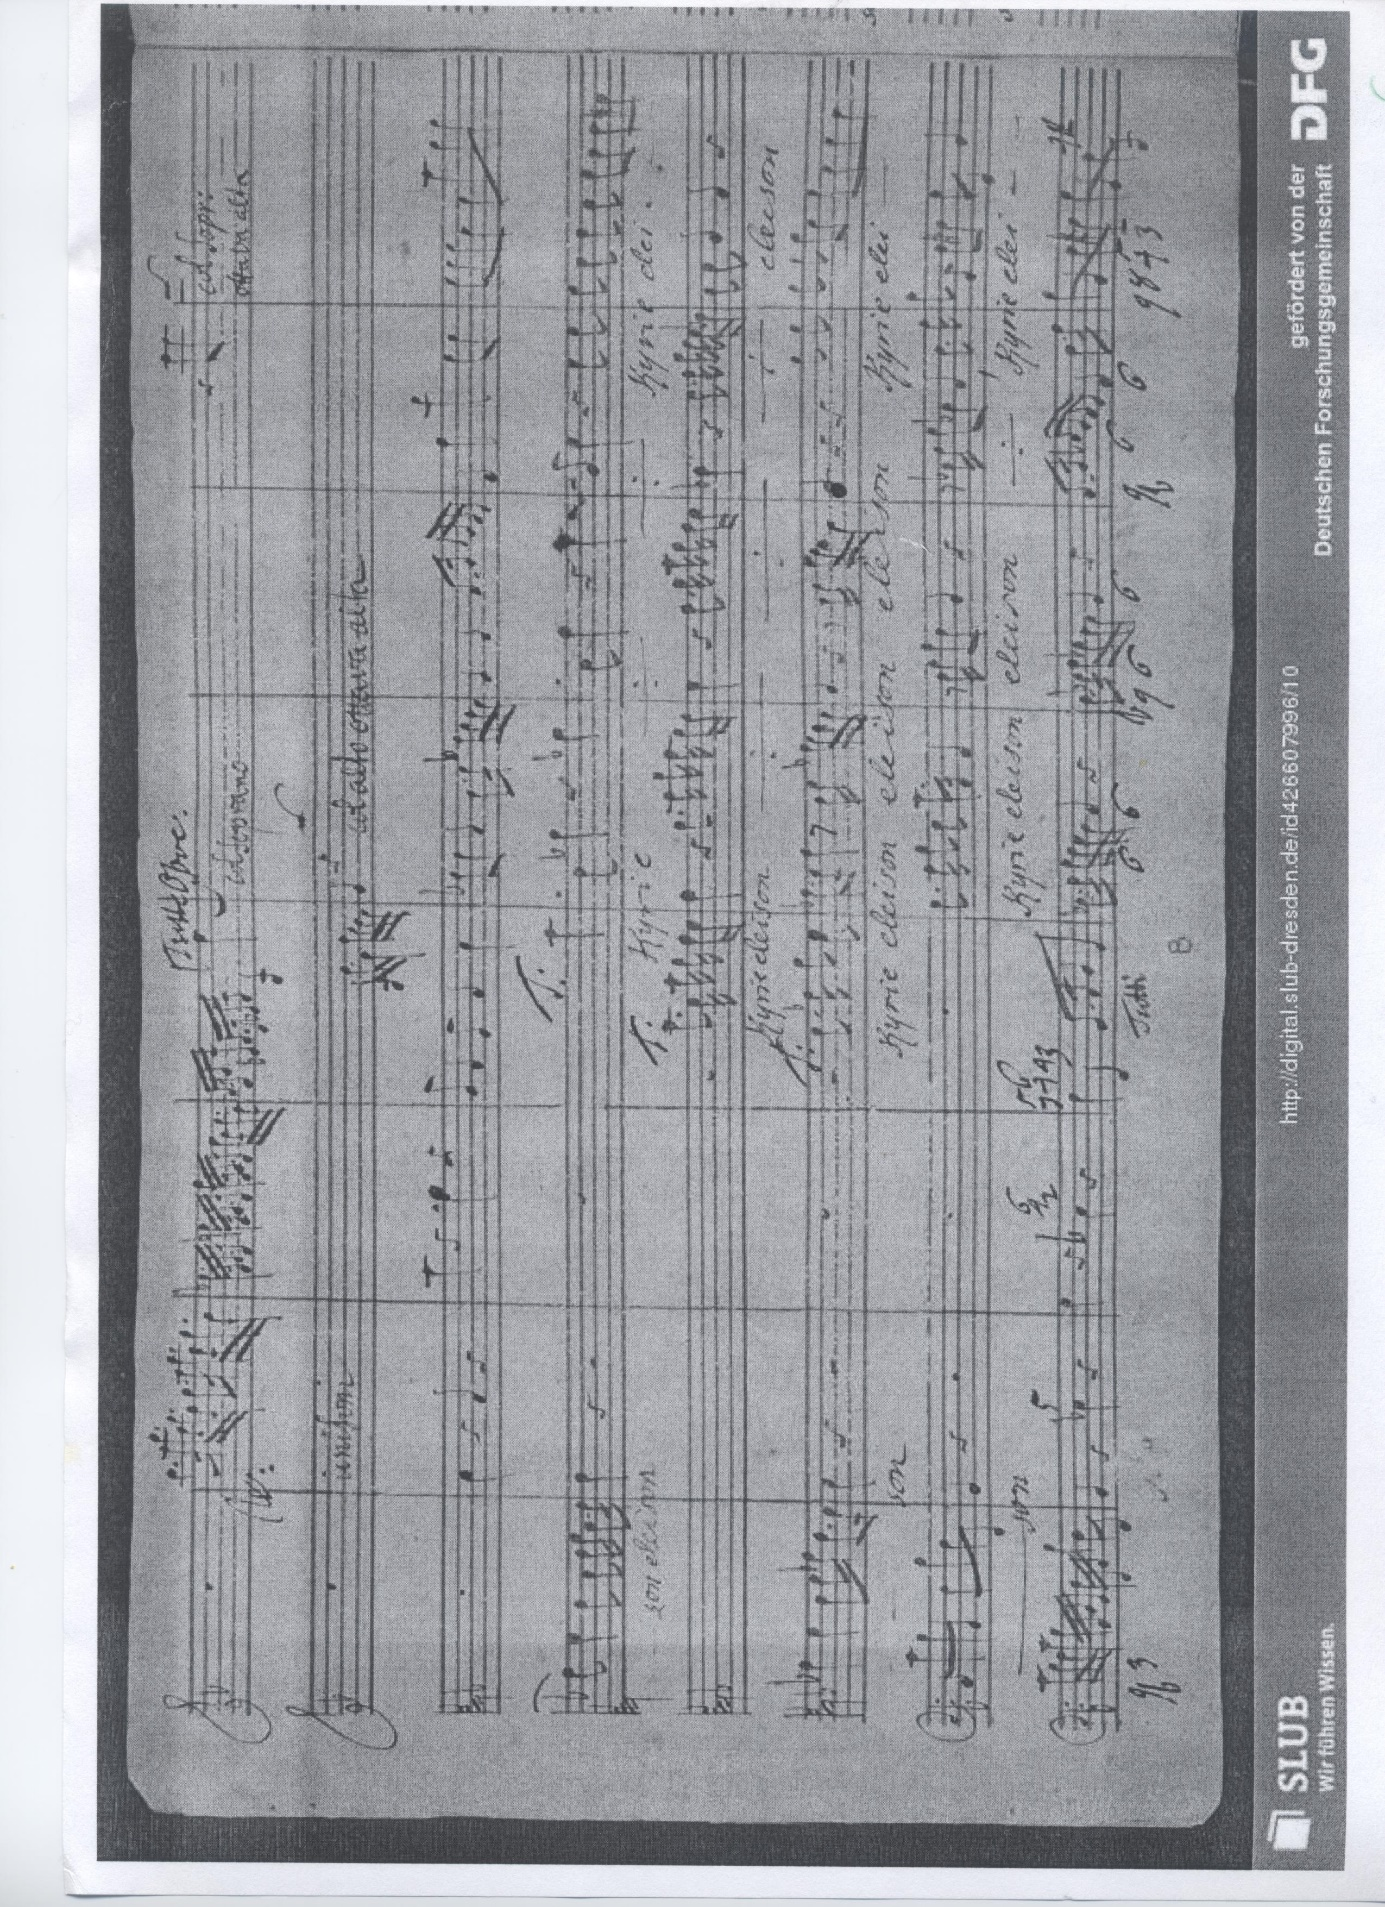 Tutti Oboe.
col Soprano
col Sopr:
ottava alta
unison
col alto ottava alta
T.
son eleison
Kyrie
Kyrie elei
T.
Kyrie eleison
eleison
T.
son
Kyrie eleison eleison eleison Kyrie elei
son
Kyrie eleison eleison
Kyrie elei
5
6
6
6
6
6
6
Tutti
8
SLUB
Wir führen Wissen.
http://digital.slub-dresden.de/id426607996/10
gefördert von der
Deutschen Forschungsgemeinschaft
DFG